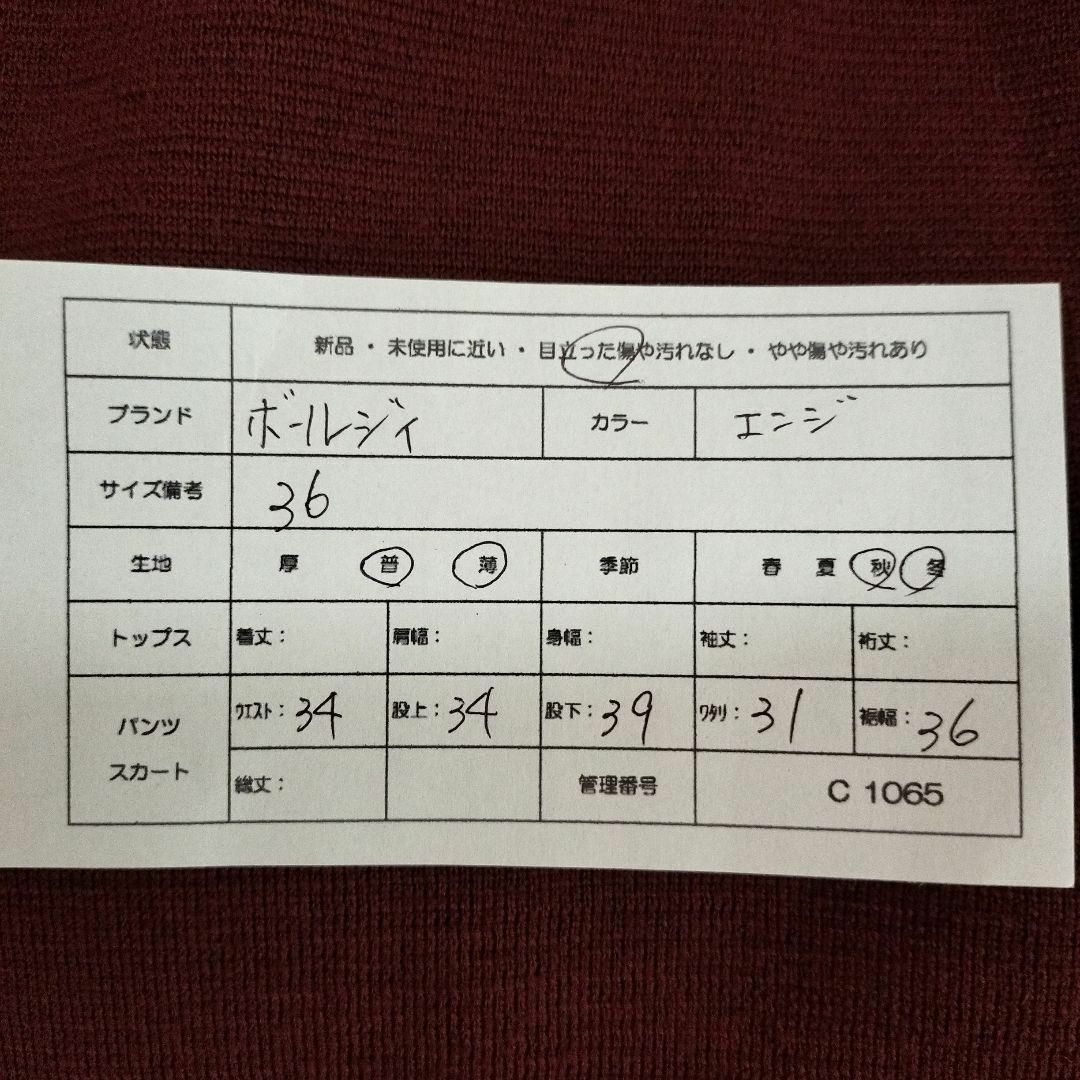 状態 新品・未使用に近い・目立った傷や汚れなし・やや傷や汚れあり
ブランド ボールジィ カラー エンジ
サイズ備考 36
生地 厚 普 薄 季節 春 夏 秋 冬
トップス 着丈： 肩幅： 身幅： 袖丈： 裄丈：
パンツ ｳｴｽﾄ：34 股上：34 股下：39 ﾜﾀﾘ：31 裾幅：36
スカート 総丈： 管理番号 C 1065